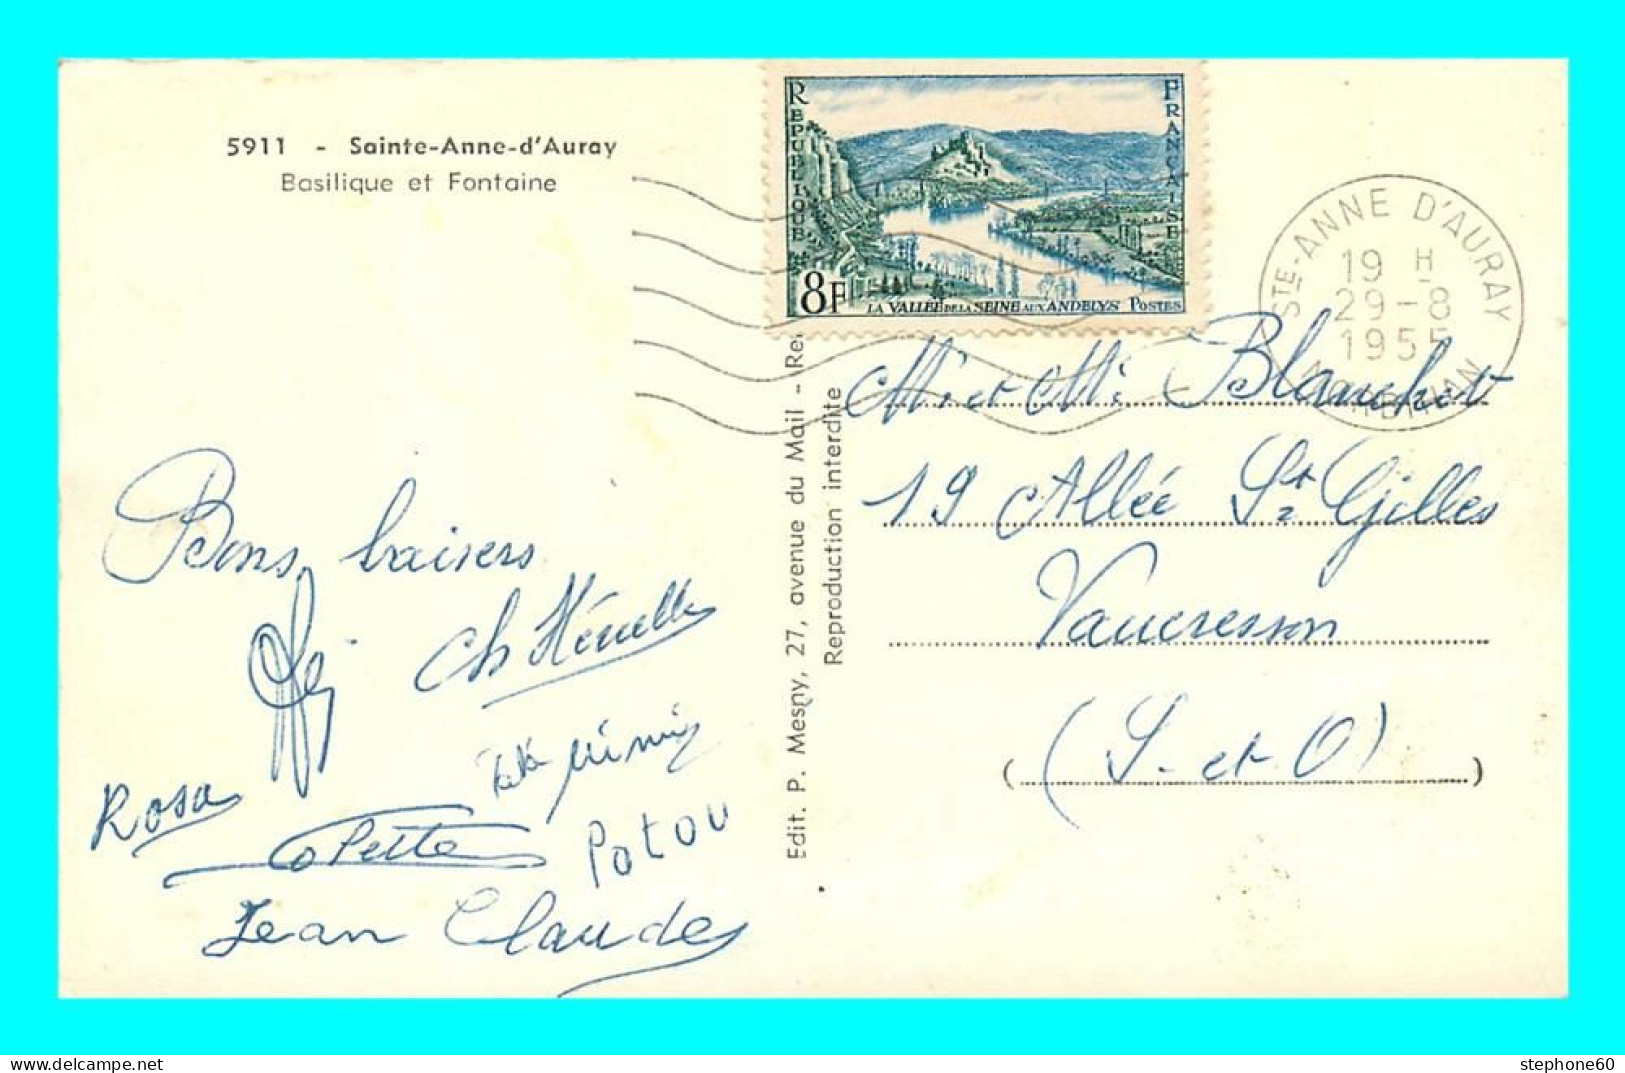 5911 - Sainte-Anne-d'Auray
Basilique et Fontaine
RÉPUBLIQUE
FRANÇAISE
8F
LA VALLÉE DE LA SEINE AUX ANDELYS POSTES
STE-ANNE D'AURAY
19 H.
29-8
1955
MORBIHAN
Edit. P. Mesny, 27, avenue du Mail -
Reproduction interdite
Mr et Mme Blanchet
19 Allée St Gilles
Vaucresson
(S. et O)
Bons baisers
Rosa
Colette
Potou
Jean Claude
stephone60